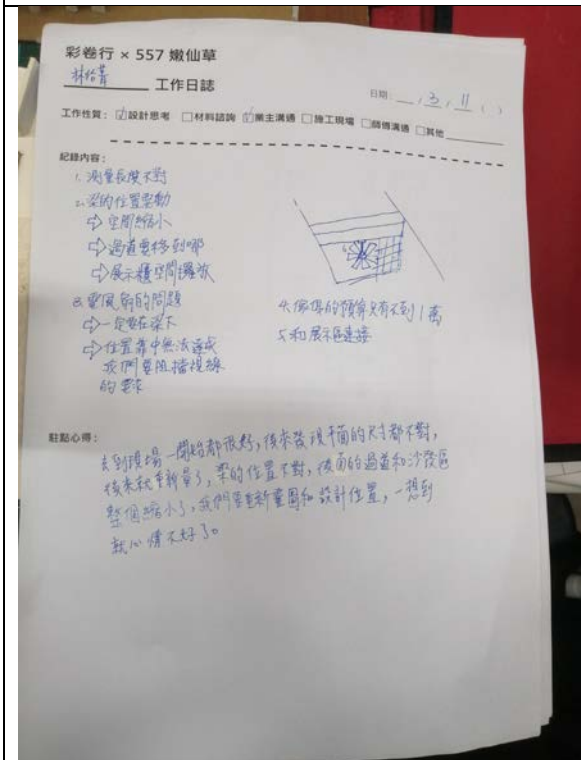 彩卷行 × 557 嫩仙草
林怡菁 工作日誌
日期：__ , 3 , 11 , ( )
工作性質：☑設計思考 □材料諮詢 ☑業主溝通 □施工現場 □師傅溝通 □其他
記錄內容：
1. 測量長度不對
2. 梁的位置要動
⇨ 空間縮小
⇨ 過道要移到哪
⇨ 展示櫃空間擺放
3. 屏風的問題
⇨ 一定要在梁下
⇨ 位置靠中無法達成
我們要阻擋視線
的要求
4. 傢俱的預算只有不到1萬
5. 和展示區連接
駐點心得：
去到現場一開始都很好，後來發現平面的尺寸都不對，
後來就重新量了，梁的位置不對，後面的過道和沙發區
整個縮小了，我們要重新畫圖和設計位置，一想到
就心情不好了。